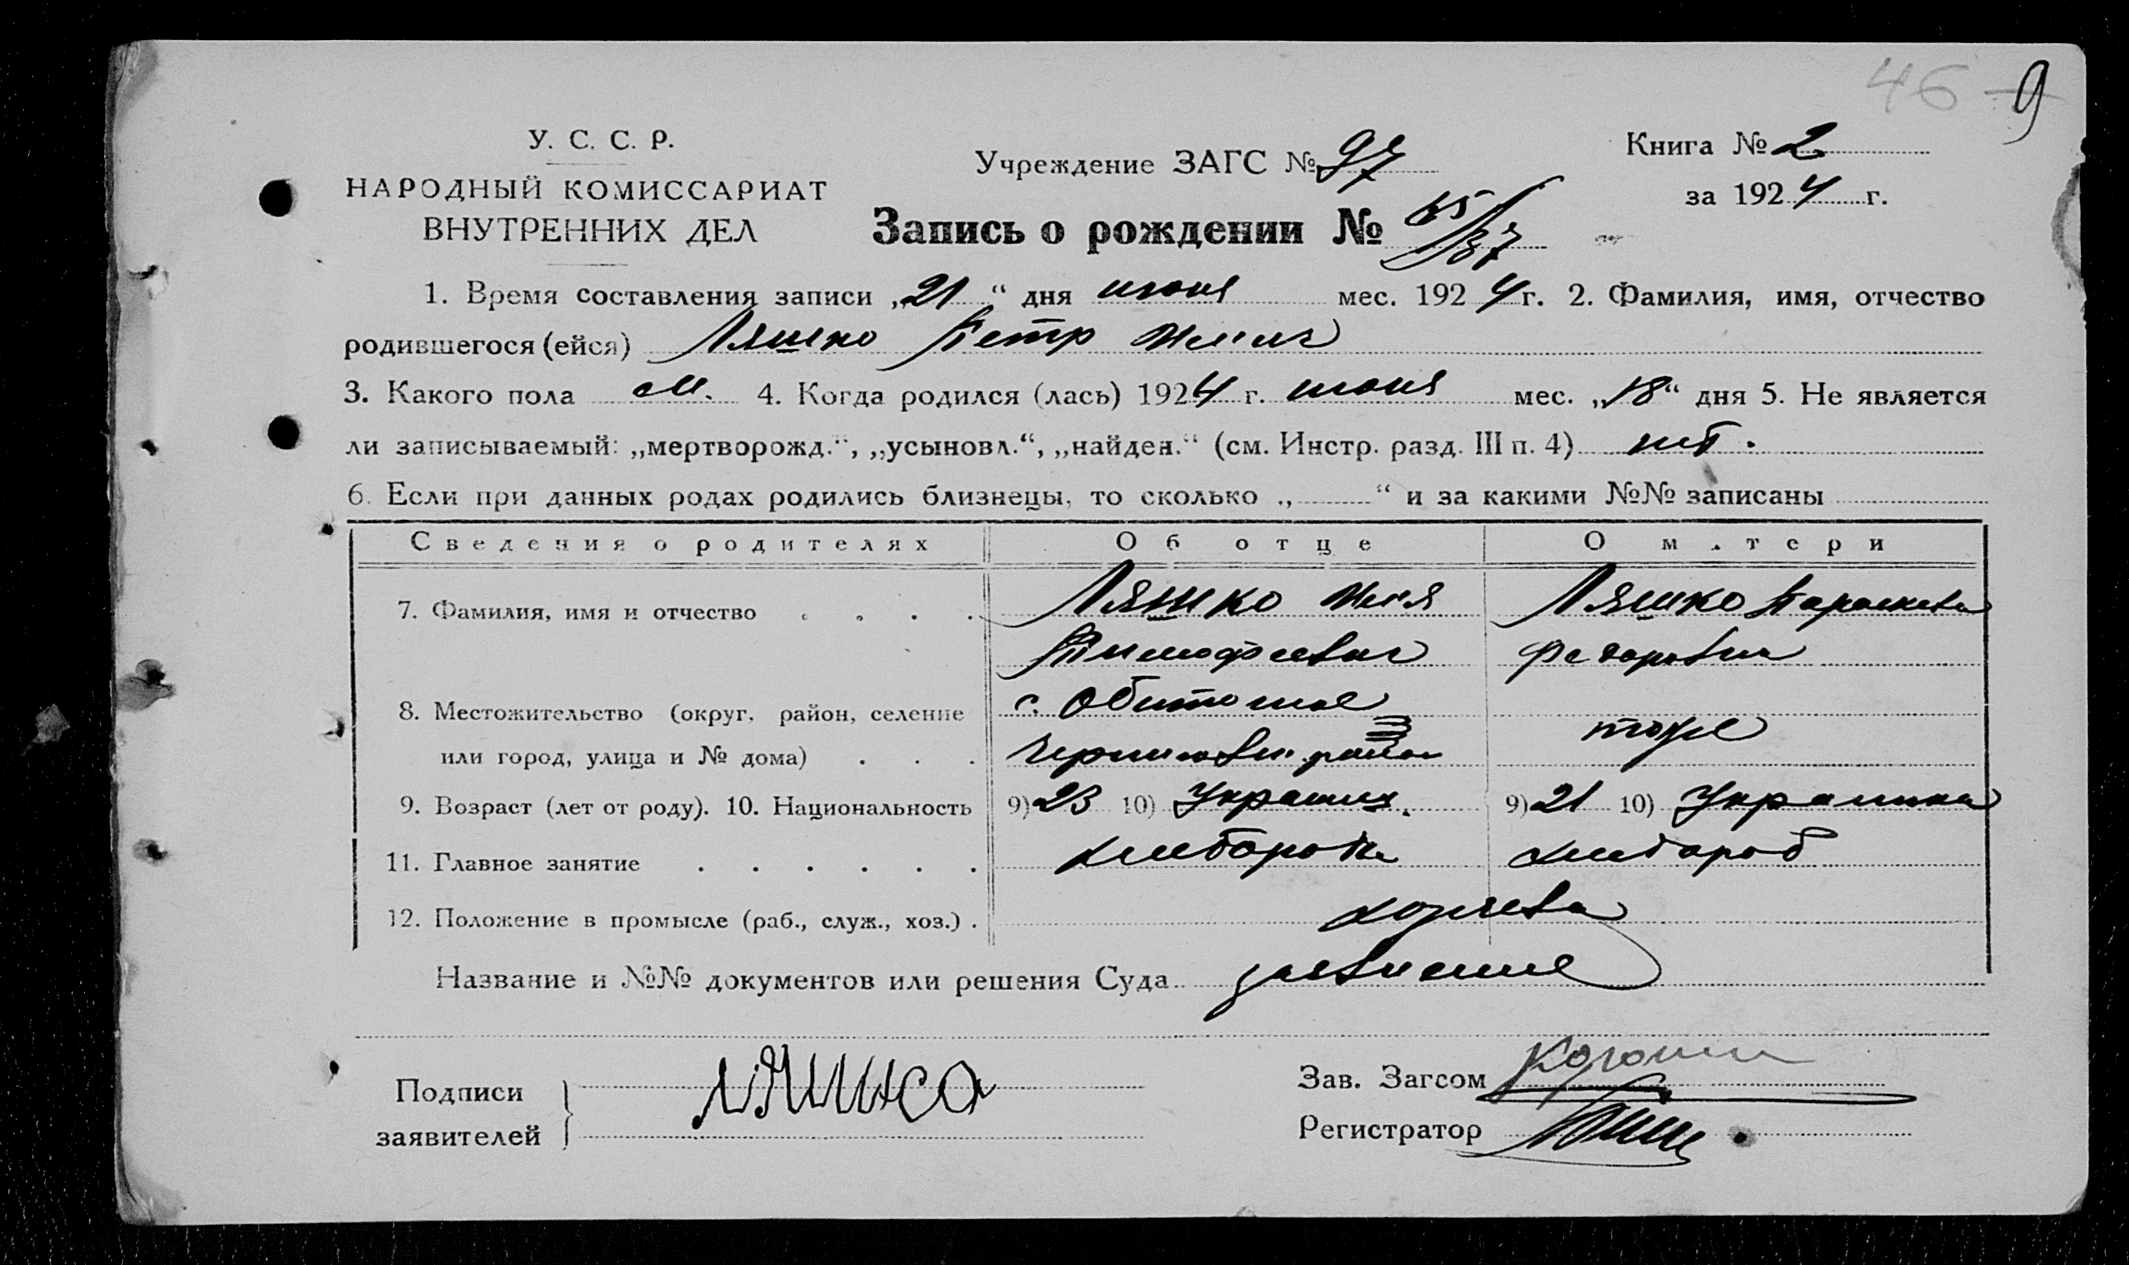 46 9
У. С. С. Р.
НАРОДНЫЙ КОМИССАРИАТ
ВНУТРЕННИХ ДЕЛ
Учреждение ЗАГС № 97
Книга № 2
за 1924 г.
Запись о рождении №
1. Время составления записи „21“ дня июня мес. 1924 г. 2. Фамилия, имя, отчество
родившегося (ейся) Ляшко Петр Ильич
3. Какого пола м. 4. Когда родился (лась) 1924 г. июня мес. „18“ дня 5. Не является
ли записываемый: „мертворожд.“, „усыновл.“, „найден.“ (см. Инстр. разд. III п. 4) нет.
6. Если при данных родах родились близнецы, то сколько „ “ и за какими №№ записаны
Сведения о родителях Об отце О матери
7. Фамилия, имя и отчество Ляшко Илья Ляшко Параскева
Тимофеевич Федоровна
8. Местожительство (округ, район, селение с. Обиточное
или город, улица и № дома) район тоже
9. Возраст (лет от роду). 10. Национальность 9) 23 10) Украинец 9) 21 10) Украинка
11. Главное занятие хлебороб
12. Положение в промысле (раб., служ., хоз.)
Название и №№ документов или решения Суда заявление
Подписи
заявителей
Зав. Загсом
Регистратор